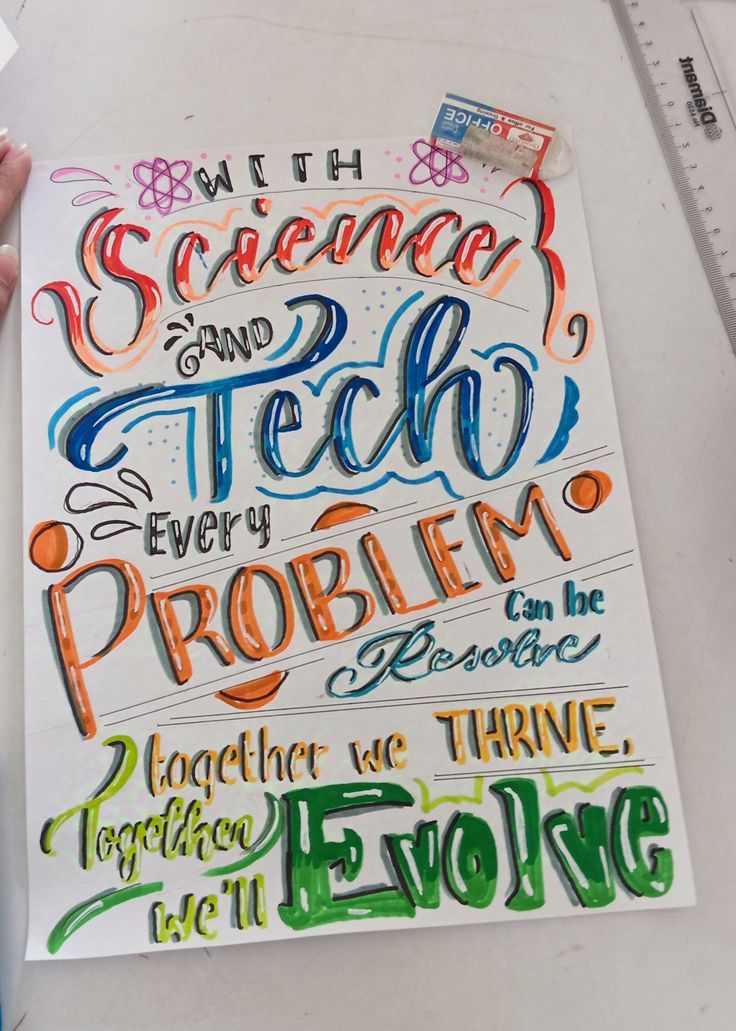 WITH
Science
AND
Tech
Every
PROBLEM
Can be
Resolve
together we THRIVE,
Together
we'll Evolve
OFFICE
For office & Drawing
Diamant